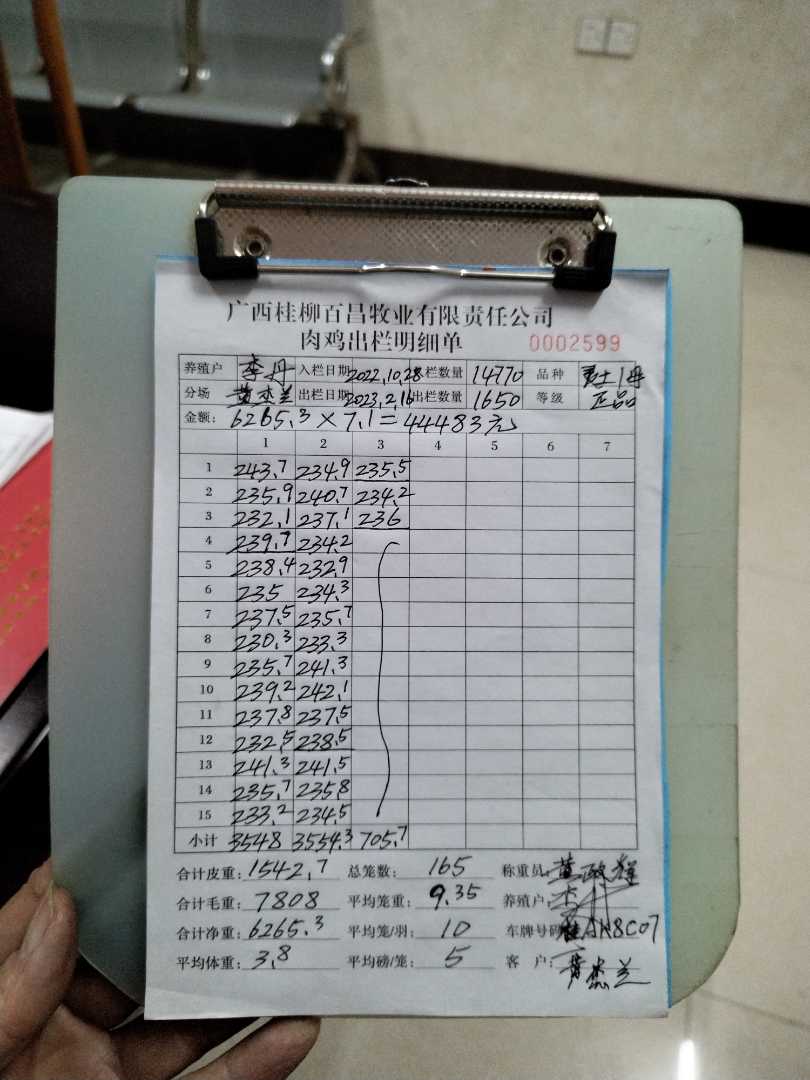 广西桂柳百昌牧业有限责任公司
肉鸡出栏明细单 0002599
养殖户 李丹 入栏日期 2022.10.28 栏数量 14770 品种
分场 黄杰兰 出栏日期 2023.2.16 出栏数量 1650 等级 正品
金额: 6265.3×7.1=44483元
1 2 3 4 5 6 7
1 243.7 234.9 235.5
2 235.9 240.7 234.2
3 232.1 237.1 236
4 239.7 234.2
5 238.4 232.9
6 235 234.3
7 237.5 235.7
8 230.3 233.3
9 235.7 241.3
10 239.2 242.1
11 237.8 237.5
12 232.5 238.5
13 241.3 241.5
14 235.7 235.8
15 233.2 234.5
小计 3548 3554.3 705.7
合计皮重: 1542.7 总笼数: 165 称重员:
合计毛重: 7808 平均笼重: 9.35 养殖户:
合计净重: 6265.3 平均笼/羽: 10 车牌号码 桂AH8C07
平均体重: 3.8 平均磅/笼: 5 客 户: 黄杰兰